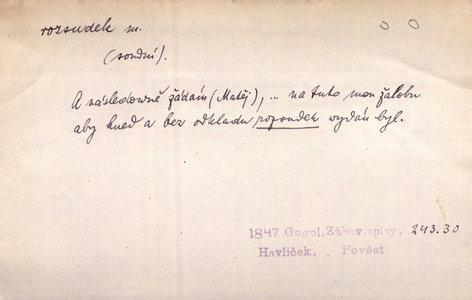 rozsudek m.
(soudní).
A následovně žádám (Matěj), ... na tuto mou žalobu
aby hned a bez odkladu rozsudek vydán byl.
1847 Gogol, Zábav.spisy. 243.30
Havlíček. Pověst